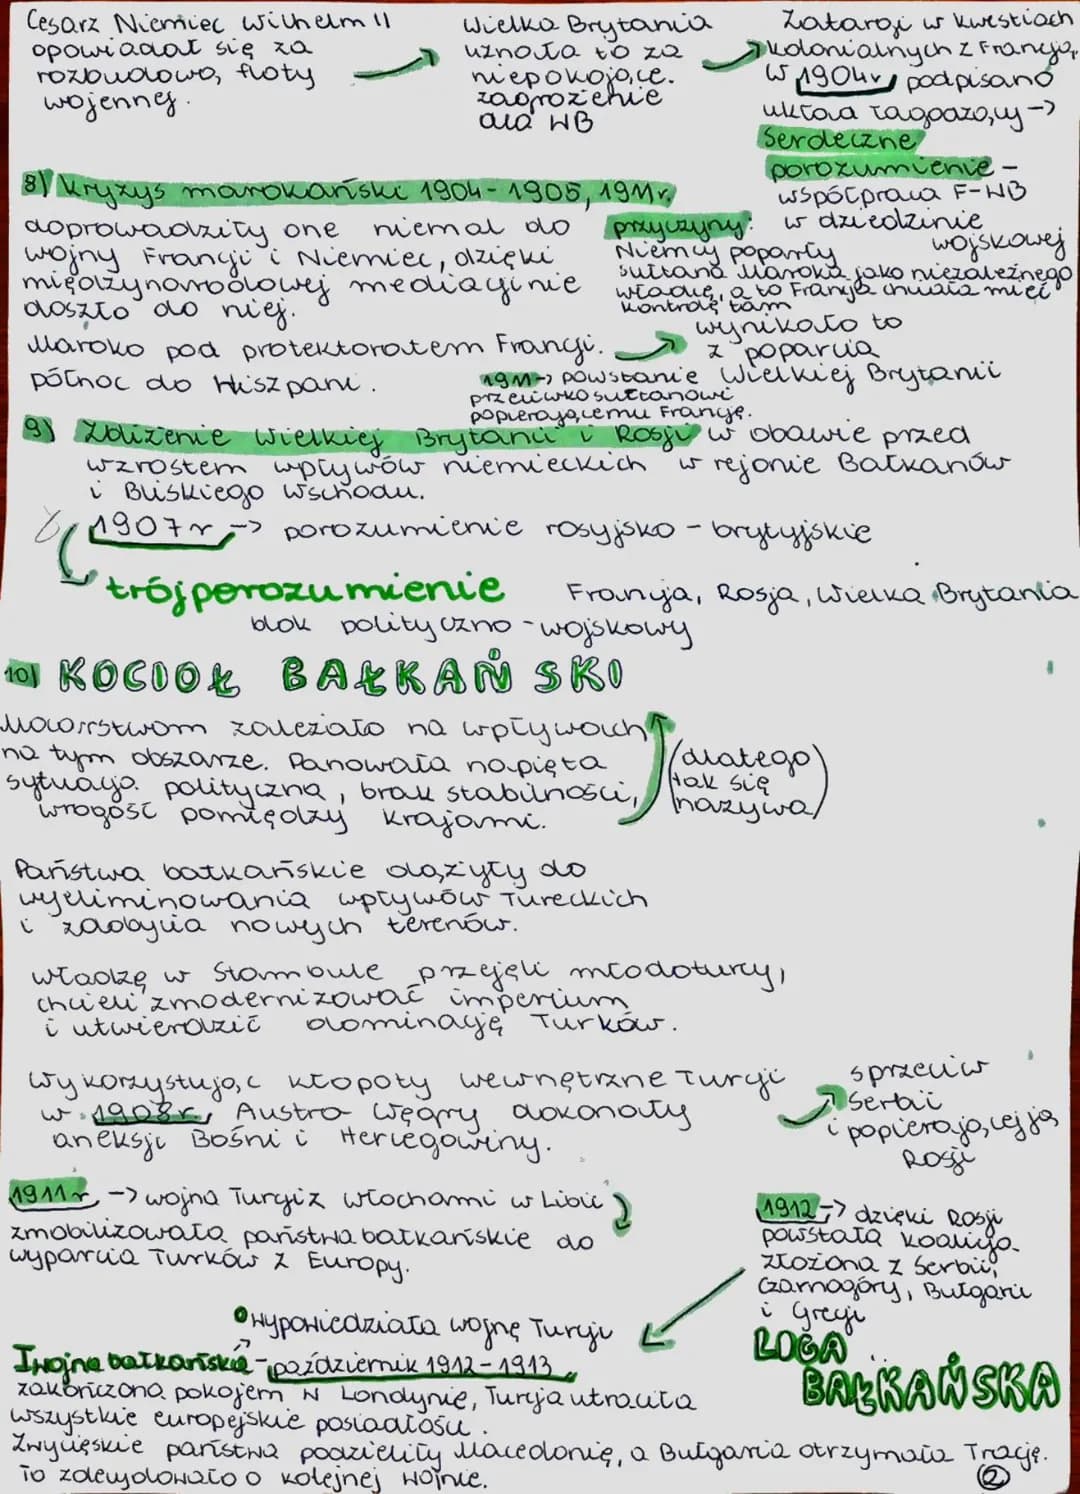 Cesarz Niemiec Wilhelm II
opowiadał się za
rozbudową floty
wojennej.
Wielka Brytania
uznała to za
niepokojące
zagrożenie
dla WB
Zatargi w kwestiach
kolonialnych z Francją,
w 1904r podpisano
układ łagodzący ->
Serdeczne
porozumienie -
współpraca F-WB
w dziedzinie
wojskowej
8) Kryzys marokański 1904-1905, 1911r.
doprowadziły one niemal do
wojny Francji i Niemiec, dzięki
międzynarodowej mediacji nie
doszło do niej.
przyczyny:
Niemcy poparły
sułtana Maroka jako niezależnego
władcę, a to Francja chciała mieć
kontrolę tam
Maroko pod protektoratem Francji.
północ do Hiszpani.
wynikało to
z poparcia
Wielkiej Brytanii
1911-> powstanie
przeciwko sułtanowi
popierającemu Francję.
9) Zbliżenie Wielkiej Brytanii i Rosji w obawie przed
wzrostem wpływów niemieckich w rejonie Bałkanów
i Bliskiego Wschodu.
1907r -> porozumienie rosyjsko - brytyjskie
trójporozumienie Francja, Rosja, Wielka Brytania
blok polityczno - wojskowy
10) KOCIOŁ BAŁKAŃSKI
Mocarstwom zależało na wpływach
na tym obszarze. Panowała napięta
sytuacja polityczna, brak stabilności,
wrogość pomiędzy krajami.
(dlatego
tak się
nazywa)
Państwa bałkańskie dążyły do
wyeliminowania wpływów Tureckich
i zdobycia nowych terenów.
władzę w Stambule przejęli młodoturcy,
chcieli zmodernizować imperium
i utwierdzić dominację Turków.
Wykorzystując kłopoty wewnętrzne Turcji
w 1908r, Austro-Węgry dokonały
aneksji Bośni i Hercegowiny.
sprzeciw
Serbii
i popierającej ją
Rosji
1911r -> wojna Turcji z Włochami w Libii
zmobilizowała państwa bałkańskie do
wyparcia Turków z Europy.
1912 -> dzięki Rosji
powstała koalicja
złożona z Serbii,
Czarnogóry, Bułgarii
i Grecji
LIGA
BAŁKAŃSKA
wypowiedziała wojnę Turcji
I wojna bałkańska - październik 1912-1913
zakończona pokojem w Londynie, Turcja utraciła
wszystkie europejskie posiadłości.
Zwycięskie państwa podzieliły Macedonię, a Bułgaria otrzymała Trację.
To zdecydowało o kolejnej wojnie.
2